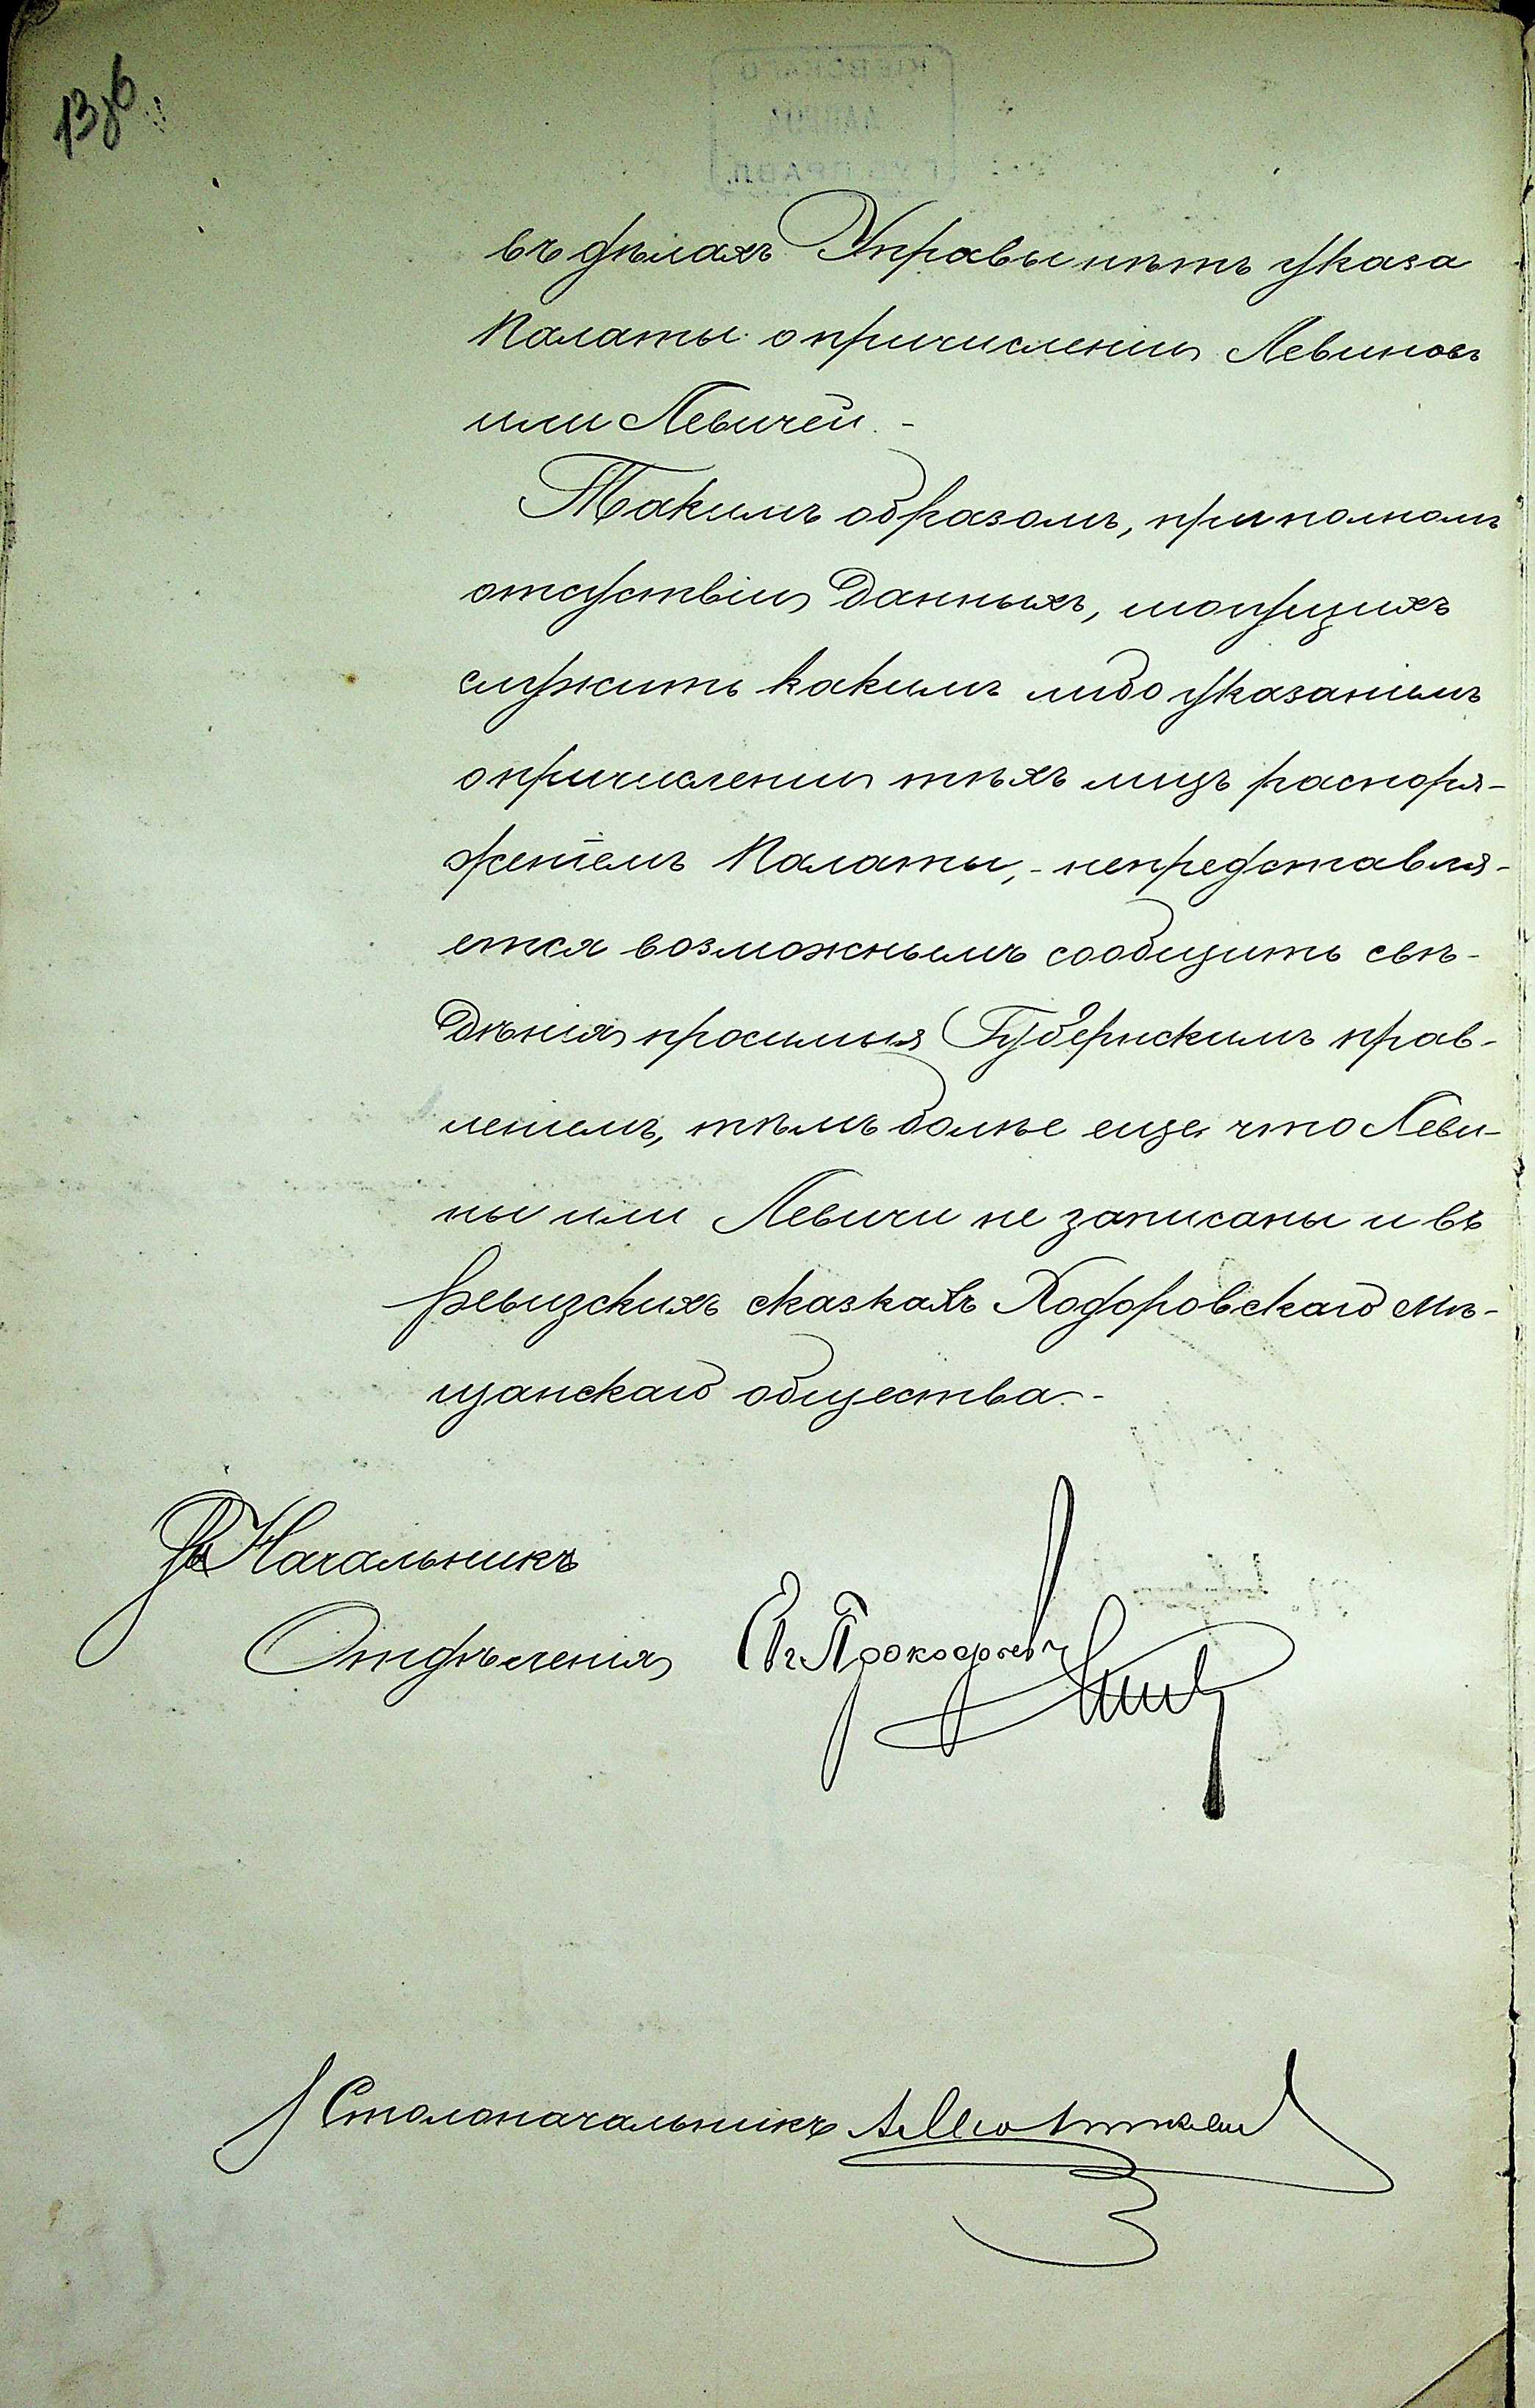 13об
въ дѣлахъ Управы нѣтъ указа
Палаты о причисленіи Левиновъ
или Левичей. -
Такимъ образомъ, при полномъ
отсутствіи данныхъ, могущихъ
служить какимъ либо указаніемъ
о причисленіи тѣхъ лицъ распоря-
женіемъ Палаты, - непредставля-
ется возможнымъ сообщить свѣ-
дѣнія просимыя Губернскимъ прав-
леніемъ, тѣмъ болѣе еще что Леви-
ны или Левичи не записаны и въ
ревизскихъ сказкахъ Ходоровскаго мѣ-
щанскаго общества. -
Начальникъ
Отдѣленія
Столоначальникъ